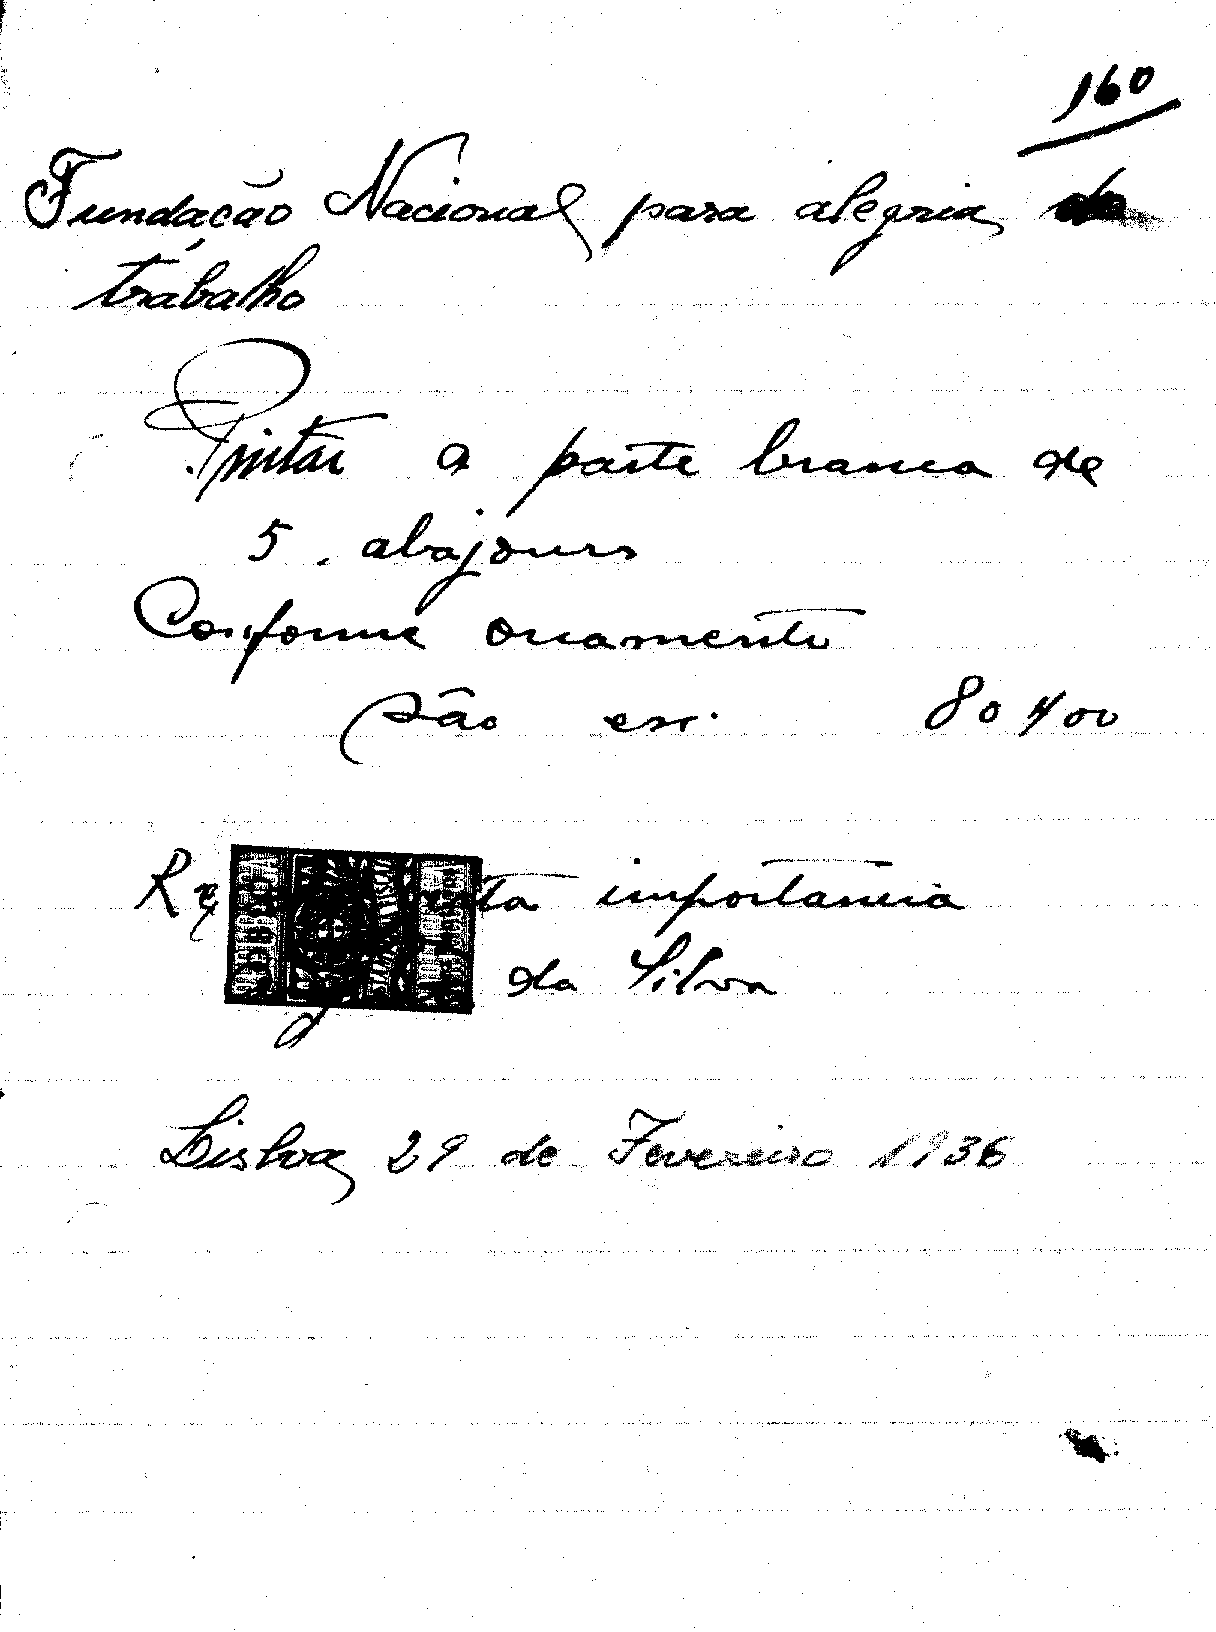 160
Fundação Nacional para alegria do
trabalho
Pintar a parte branca de
5. abajours
Conforme oramento
são esc. 80$00
importancia
da Silva
Lisboa 29 de Fevereiro 1936